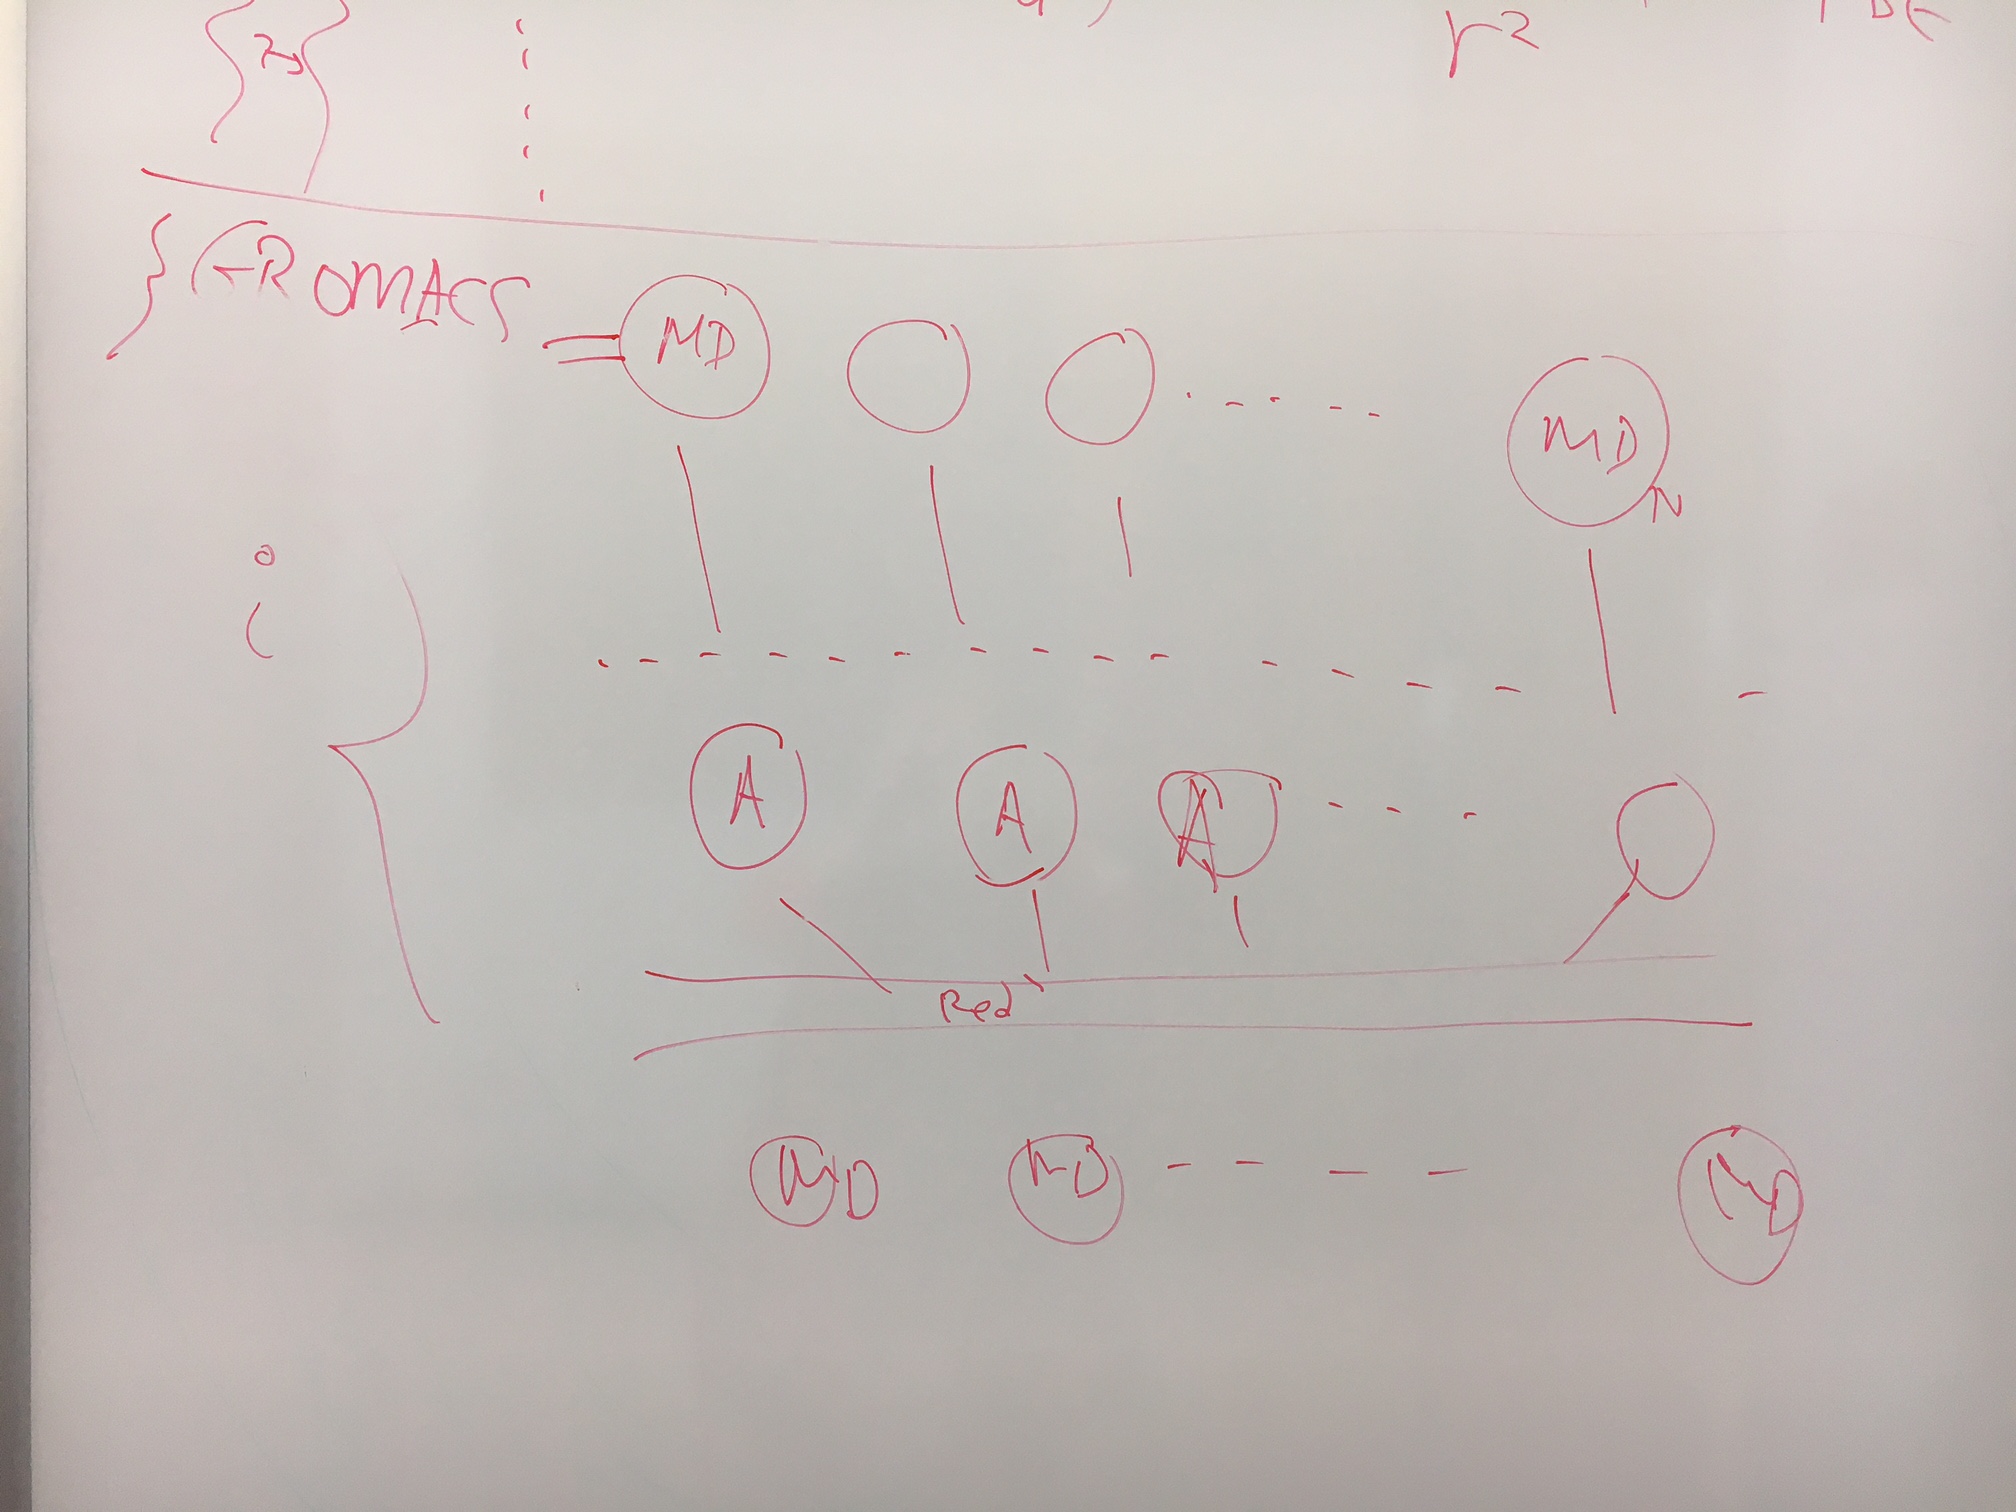 r²
GROMACS
MD
MD
N
i
A
A
A
Red
MD
MD
MD